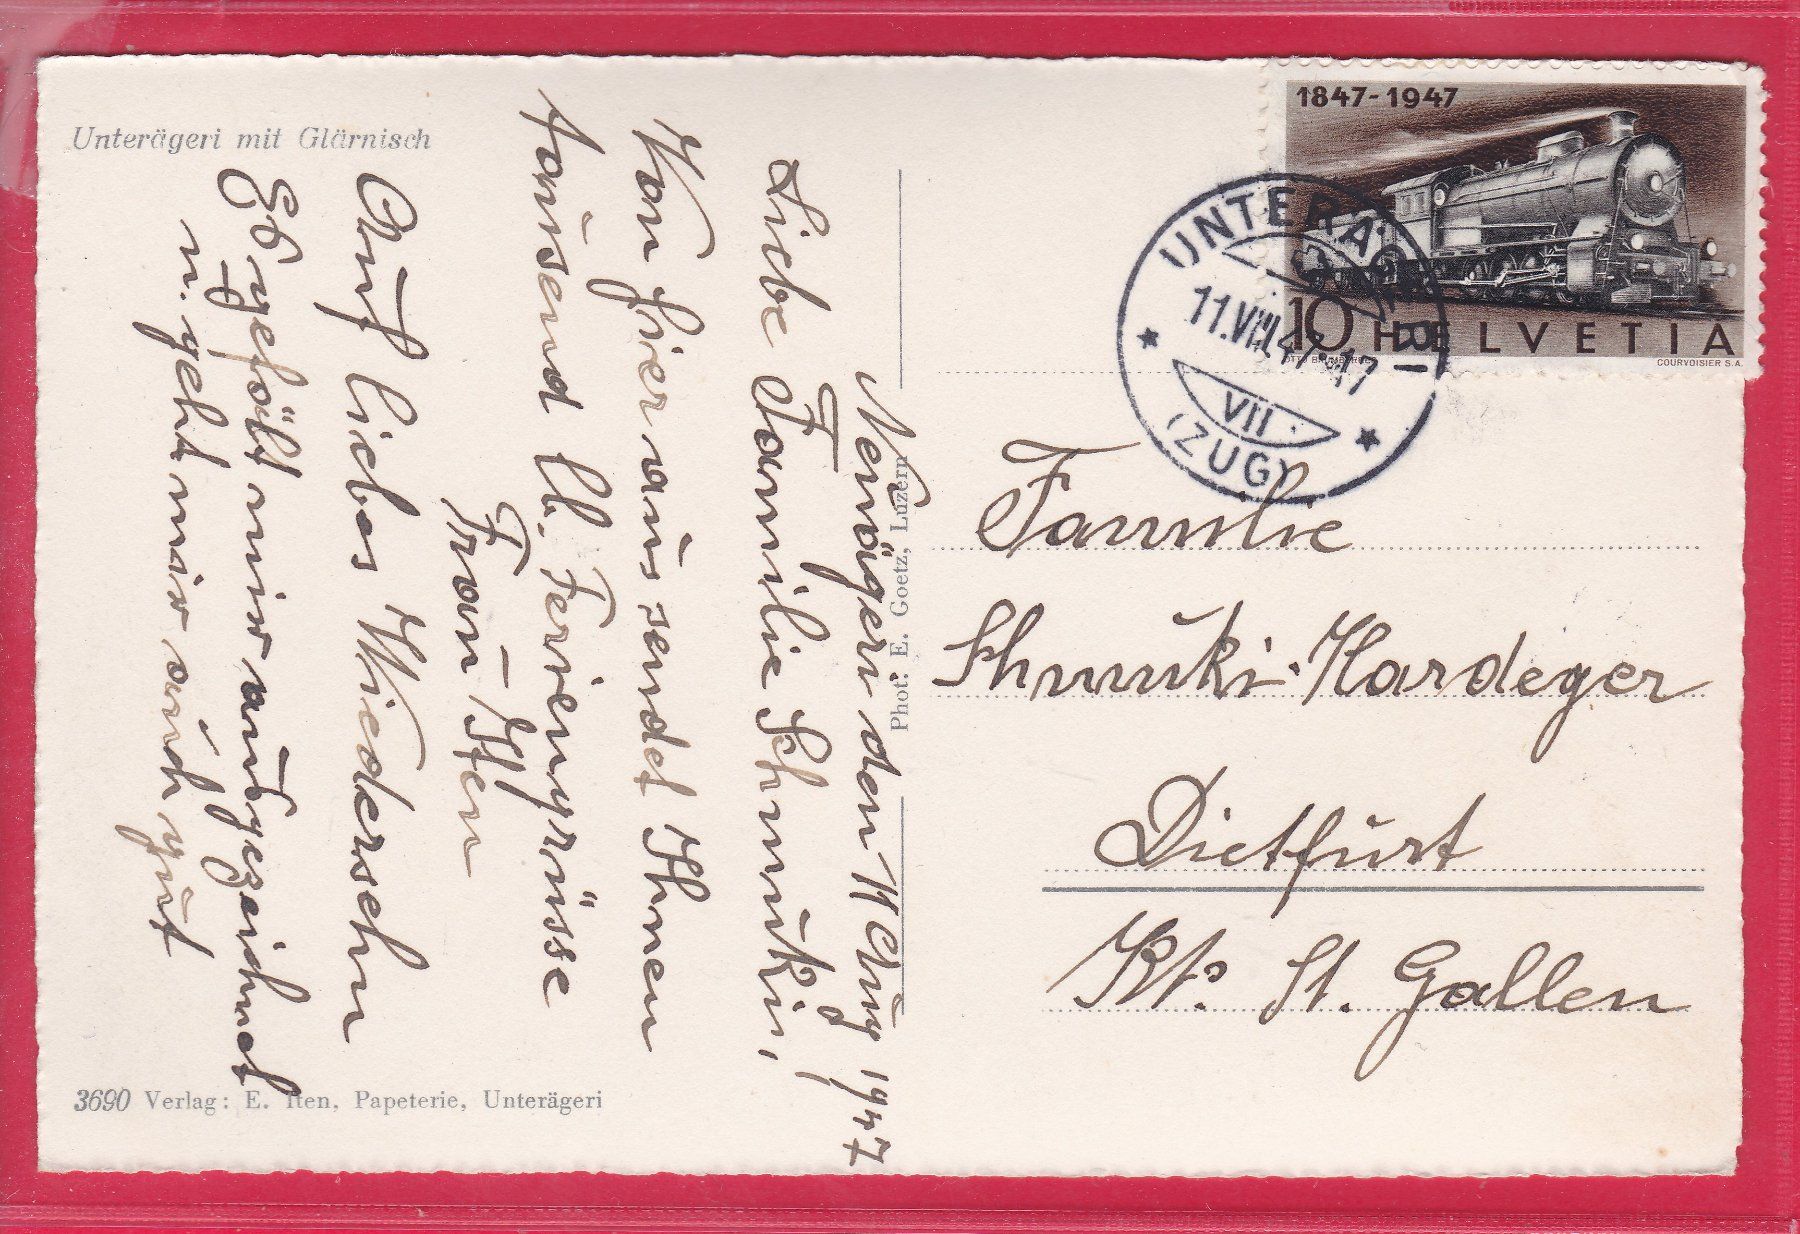 Unterägeri mit Glärnisch
1847-1947
10 HELVETIA
OTTO BAUMBERGER
COURVOISIER S.A.
UNTERÄGERI
11.VIII.47-17
VII
(ZUG)
Familie
Schmuki-Hardeger
Dietfurt
Kt. St. Gallen
den 11 Aug 1947
Liebe Familie Schmuki,
Von hier aus sendet Ihnen
tausend lb. Feriengrüsse
Frau Iten
Auf liebes Wiedersehn
Es gefällt mir ausgezeichnet
u. geht mir auch gut
Phot: E. Goetz, Luzern
3690 Verlag: E. Iten, Papeterie, Unterägeri